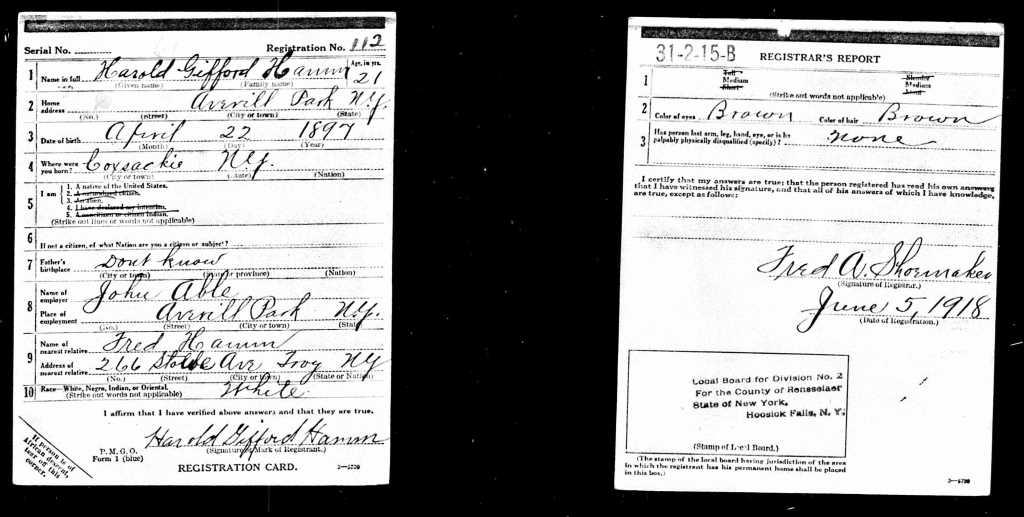 Serial No. Registration No. 112
1 Name in full Harold Gifford Hamm Age, in yrs. 21
(Given name) (Family name)
2 Home address Averill Park N.Y.
(No.) (Street) (City or town) (State)
3 Date of birth April 22 1897
(Month) (Day) (Year)
4 Where were you born? Coxsackie N.Y.
(City or town) (State) (Nation)
5 I am
1. A native of the United States.
2. A naturalized citizen.
3. An alien.
4. I have declared my intention.
5. A noncitizen or citizen Indian.
(Strike out lines or words not applicable)
6 If not a citizen, of what Nation are you a citizen or subject?
7 Father's birthplace Dont know
(City or town) (State or province) (Nation)
8 Name of employer John Able
Place of employment Averill Park N.Y.
(No.) (Street) (City or town) (State)
9 Name of nearest relative Fred Hamm
Address of nearest relative 266 Ave Troy NY
(No.) (Street) (City or town) (State or Nation)
10 Race—White, Negro, Indian, or Oriental. White
(Strike out words not applicable)
I affirm that I have verified above answers and that they are true.
Harold Gifford Hamm
(Signature or Mark of Registrant.)
P. M. G. O.
Form 1 (blue)
REGISTRATION CARD.
If person is of
African descent,
tear off this
corner.
31-2-15-B REGISTRAR'S REPORT
1 Tall Slender
Medium Medium
Short Stout
(Strike out words not applicable)
2 Color of eyes Brown Color of hair Brown
3 Has person lost arm, leg, hand, eye, or is he
palpably physically disqualified (specify)? none
I certify that my answers are true; that the person registered has read his own answers
that I have witnessed his signature, and that all of his answers of which I have knowledge,
are true, except as follows:
Fred A. Shoemaker
(Signature of Registrar.)
June 5, 1918
(Date of Registration.)
Local Board for Division No. 2
For the County of Rensselaer
State of New York,
Hoosick Falls, N. Y.
(Stamp of Local Board.)
(The stamp of the local board having jurisdiction of the area
in which the registrant has his permanent home shall be placed
in this box.)